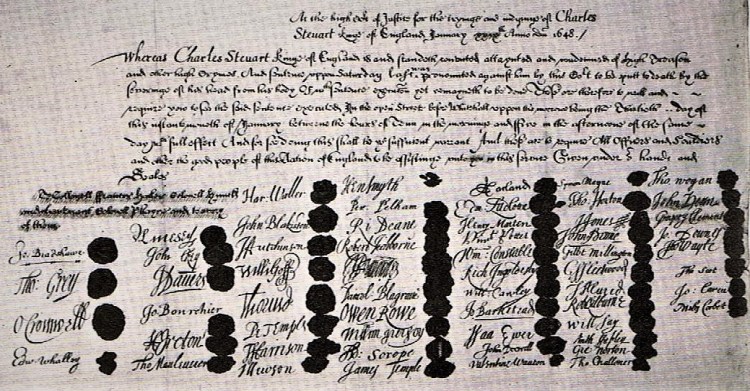 At the high Cort of Justice for the tryinge and iudginge of Charles
Steuart Kinge of England January xxixth Anno Dni 1648./
Whereas Charles Steuart Kinge of England is and standeth convicted attaynted and condemned of High Treason
and other high Crymes And sentence uppon Saturday last was pronounced against him by this Cort to be putt to death by the
severinge of his head from his body Of wch sentence execucon yet remayneth to be done These are therefore to will and
require you to see the said sentence executed In the open Streete before Whitehall uppon the morrowe being the Thirtieth day of
this instante moneth of January betweene the houres of Tenn in the morninge and Five in the afternoone of the same
day wth full effect And for soe doing this shall be yor sufficient warrant And these are to require All Officers and Souldiers
and other the good people of this Nation of England to be assistinge unto you in this service Given under our hands and
Seales
To Collonell Francis Hacker Colonell Huncks
and Lieutenant Colonell Phayre and to every
of them
Jo: Bradshawe
Tho: Grey
O Cromwell
Edw: Whalley
M Livesey
John Okey
J Danvers
Jo Bourchier
H Ireton
Tho Mauleverer
Har: Waller
John Blakiston
J Hutchinson
Willi Goff
Tho Pride
P Temple
T Harrison
J Hewson
Hen Smyth
Per Pelham
Ri Deane
Robert Tichborne
H Edwardes
Daniel Blagrave
Owen Rowe
William Purefoy
Ad: Scrope
James Temple
A Garland
Edm Ludlowe
Henry Marten
Vinct Potter
Wm: Constable
Rich Ingoldesby
Will: Cawley
Jo Barkestead
Isaa Ewer
John Dixwell
Valentine Wauton
Symon Mayne
Tho Horton
J Jones
John Penne
Gilbt Millington
G Fleetwood
J Alured
Robt Lilburne
Will Say
Anth Stapley
Gre Norton
Tho Challoner
Tho Wogan
John Venn
Gregory Clement
Jo Downes
Tho Wayte
Tho Scot
Jo: Carew
Miles Corbet